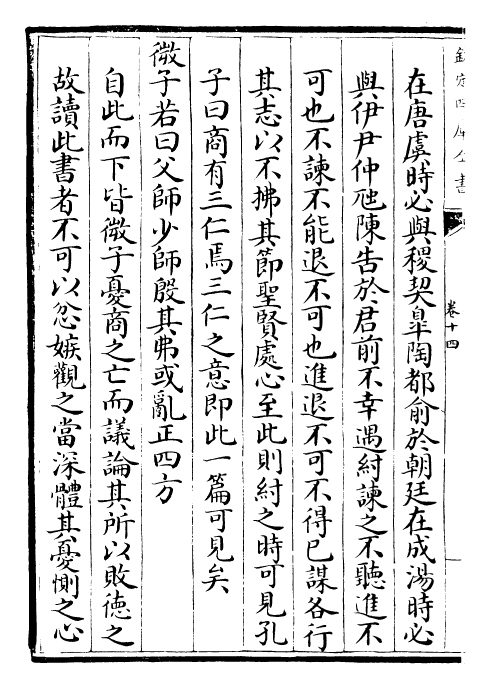 欽定四庫全書
卷十四
在唐虞時必與稷契臯陶都俞於朝廷在成湯時必
與伊尹仲虺陳告於君前不幸遇紂諫之不聽進不
可也不諫不能退不可也進退不可不得已謀各行
其志以不拂其節聖賢處心至此則紂之時可見孔
子曰商有三仁焉三仁之意即此一篇可見矣
微子若曰父師少師殷其弗或亂正四方
自此而下皆微子憂商之亡而議論其所以敗德之
故讀此書者不可以忿嫉觀之當深體其憂惻之心